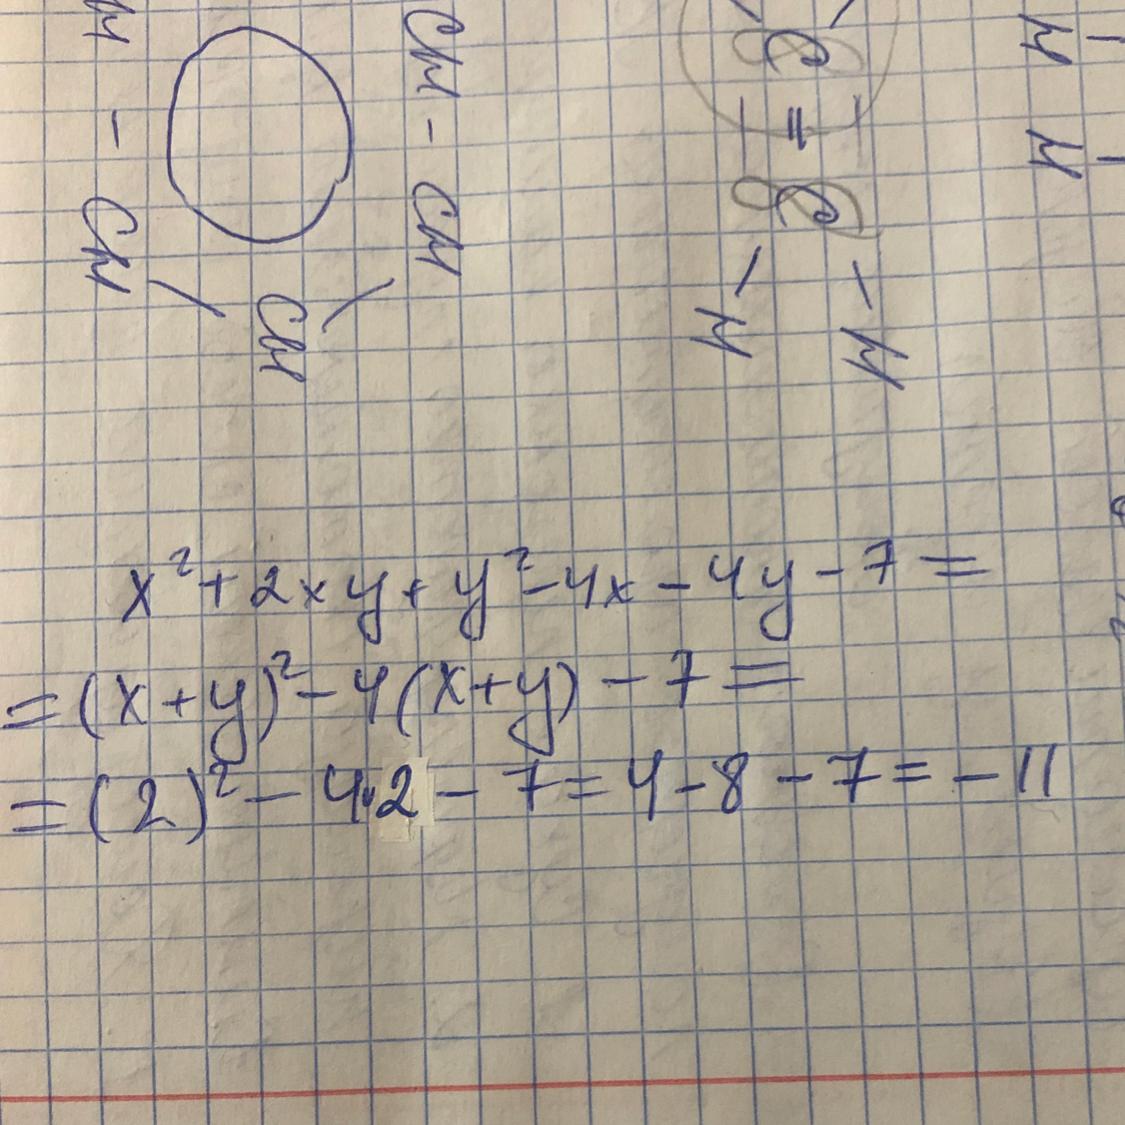 CH - CH
CH
H - CH
C = C
H
H
H
H
x² + 2xy + y² - 4x - 4y - 7 =
= (x + y)² - 4(x + y) - 7 =
= (2)² - 4·2 - 7 = 4 - 8 - 7 = - 11